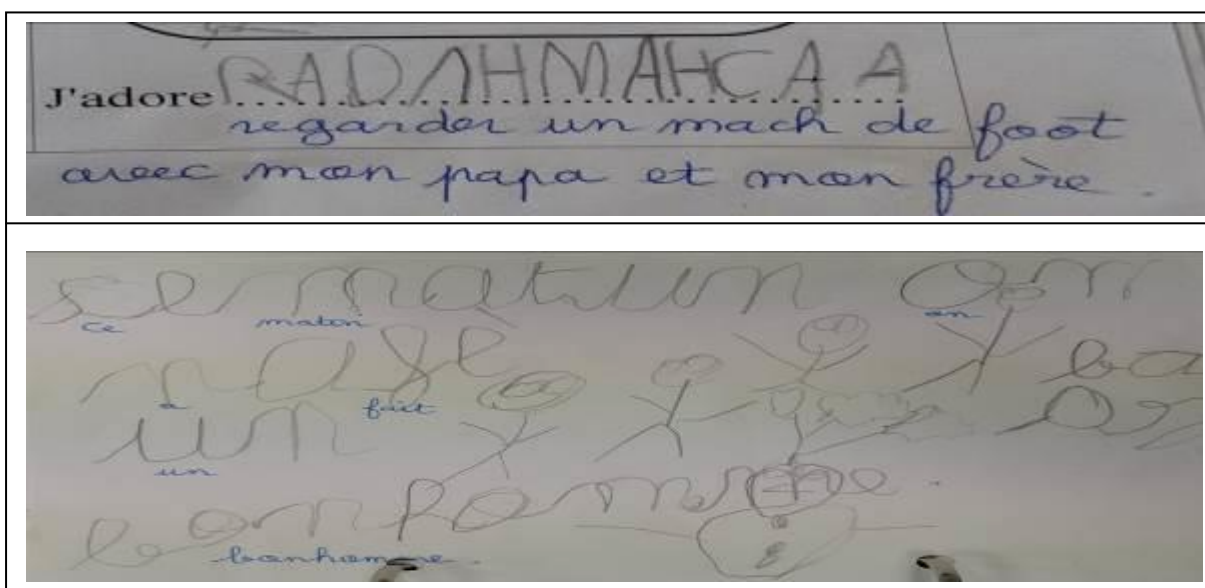 J'adore RADAHMAHCAA
regarder un mach de foot
avec mon papa et mon frère.
se matun on
ce maton on
n a fe
a fait
un
un
bonhomme.